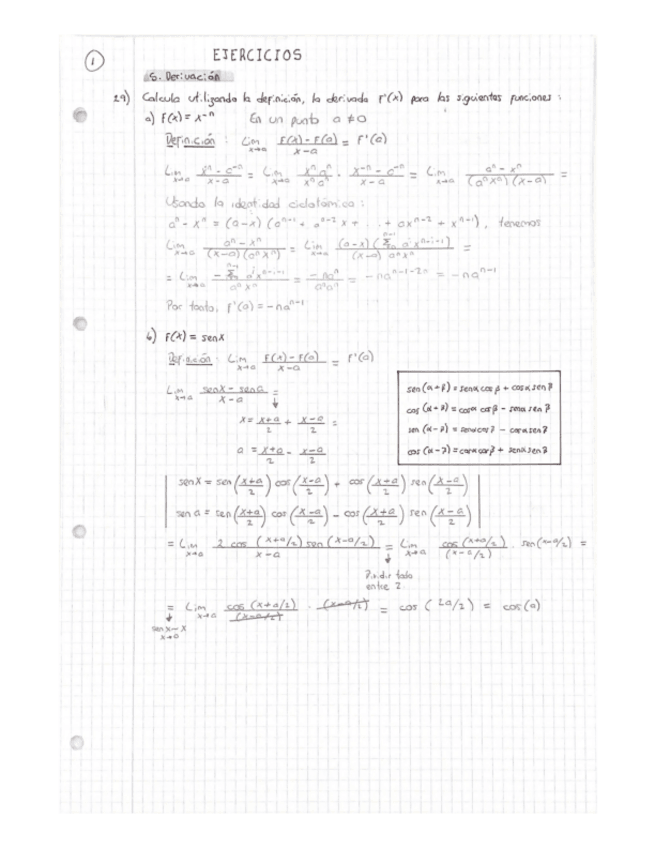 1
EJERCICIOS
5. Derivación
29) Calcula utilizando la definición, la derivada f'(x) para las siguientes funciones:
a) f(x) = x^-n En un punto a ≠ 0
Definición: Lim x→a (f(x) - f(a))/(x-a) = f'(a)
Lim x→a (x^-n - a^-n)/(x-a) = Lim x→a (x^n a^n)/(x^n a^n) · (x^-n - a^-n)/(x-a) = Lim x→a (a^n - x^n)/((a^n x^n)(x-a)) =
Usando la identidad ciclotómica:
a^n - x^n = (a-x)(a^n-1 + a^n-2 x + ... + ax^n-2 + x^n-1), tenemos
Lim x→a (a^n - x^n)/((x-a)(a^n x^n)) = Lim x→a ((a-x)(Σ a^i x^n-i-1))/((x-a) a^n x^n) =
= Lim x→a (-Σ a^i x^n-i-1)/(a^n x^n) = (-na^n)/(a^n a^n) = -na^n-1-2n = -na^n-1
Por tanto, f'(a) = -na^n-1
b) f(x) = senx
Definición: Lim x→a (f(x) - f(a))/(x-a) = f'(a)
Lim x→a (senx - sena)/(x-a) =
↓
x = (x+a)/2 + (x-a)/2 =
a = (x+a)/2 - (x-a)/2
sen(α+β) = senα cosβ + cosα senβ
cos(α+β) = cosα cosβ - senα senβ
sen(α-β) = senα cosβ - cosα senβ
cos(α-β) = cosα cosβ + senα senβ
senx = sen((x+a)/2) cos((x-a)/2) + cos((x+a)/2) sen((x-a)/2)
sena = sen((x+a)/2) cos((x-a)/2) - cos((x+a)/2) sen((x-a)/2)
= Lim x→a (2 cos(x+a/2) sen(x-a/2))/(x-a) = Lim x→a (cos(x+a/2))/((x-a/2)) · sen(x-a/2) =
↓
Dividir todo
entre 2.
= Lim x→a (cos(x+a/2))/((x-a/2)) · (x-a/2) = cos(2a/2) = cos(a)
↓
senx ~ x
x→0